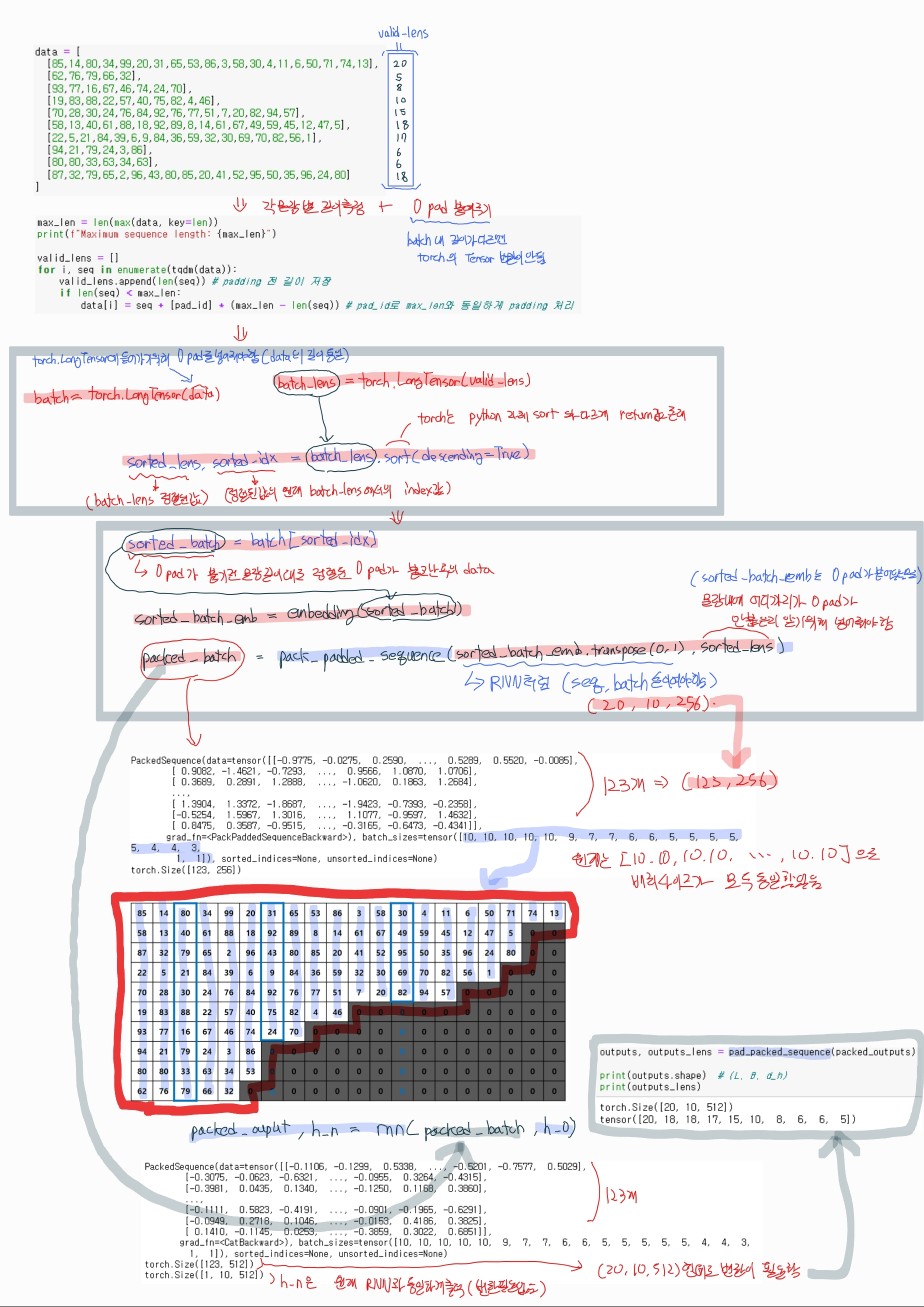 valid-lens
data = [
[85,14,80,34,99,20,31,65,53,86,3,58,30,4,11,6,50,71,74,13], 20
[62,76,79,66,32], 5
[93,77,16,67,46,74,24,70] 8
[19,83,88,22,57,40,75,82,4,46], 10
[70,28,30,24,76,84,92,76,77,51,7,20,82,94,57], 15
[58,13,40,61,88,18,92,89,8,14,61,67,49,59,45,12,47,5], 18
[22,5,21,84,39,6,9,84,36,59,32,30,69,70,82,56,1], 17
[94,21,79,24,3,86], 6
[80,80,33,63,34,63], 6
[87,32,79,65,2,96,43,80,85,20,41,52,95,50,35,96,24,80] 18
]
각 문장별 길이측정 + 0 pad 붙여주기
max_len = len(max(data, key=len))
print(f"Maximum sequence length: {max_len}")
batch내 길이가다르면
torch의 Tensor 변환이 안됨
valid_lens = []
for i, seq in enumerate(tqdm(data)):
valid_lens.append(len(seq)) # padding 전 길이 저장
if len(seq) < max_len:
data[i] = seq + [pad_id] * (max_len - len(seq)) # pad_id로 max_len와 동일하게 padding 처리
torch.LongTensor에 들어가기위해 0 pad를 (data의 길이 동일)
batch = torch.LongTensor(data)
batch_lens = torch.LongTensor(valid-lens)
torch는 python 자체 sort 와 다르게 return값 존재
sorted_lens, sorted_idx = batch_lens.sort(descending=True)
(batch-lens 정렬된값) (정렬된값의 원래 batch-lens에서의 index값)
sorted_batch = batch[sorted_idx]
0 pad가 붙기전 문장길이대로 정렬된 0 pad가 data
(sorted_batch_emb는 0 pad가
sorted_batch_emb = embedding(sorted_batch)
문장내에 어디까지가 0 pad가
알기위해 넣어줘야함
packed_batch = pack_padded_sequence(sorted_batch_emb.transpose(0,1), sorted_lens)
RNN처럼 (seq, batch
(20, 10, 256)
PackedSequence(data=tensor([[-0.9775, -0.0275, 0.2590, ..., 0.5289, 0.5520, -0.0085],
[ 0.9082, -1.4621, -0.7293, ..., 0.9566, 1.0870, 1.0706],
[ 0.3689, 0.2891, 1.2888, ..., -1.0620, 0.1863, 1.2684],
...,
[ 1.3904, 1.3372, -1.8687, ..., -1.9423, -0.7393, -0.2358],
[-0.5254, 1.5967, 1.3016, ..., 1.1077, -0.9597, 1.4632],
[ 0.8475, 0.3587, -0.9515, ..., -0.3165, -0.6473, -0.4341]],
123개 => (123, 256)
grad_fn=<PackPaddedSequenceBackward>), batch_sizes=tensor([10, 10, 10, 10, 10, 9, 7, 7, 6, 6, 5, 5, 5, 5, 5,
5, 4, 4, 3,
1, 1]), sorted_indices=None, unsorted_indices=None)
torch.Size([123, 256])
원래는 [10.10, 10.10, ..., 10.10]으로
배치사이즈가 모두 동일했을듯
85 14 80 34 99 20 31 65 53 86 3 58 30 4 11 6 50 71 74 13
58 13 40 61 88 18 92 89 8 14 61 67 49 59 45 12 47 5 0 0
87 32 79 65 2 96 43 80 85 20 41 52 95 50 35 96 24 80 0 0
22 5 21 84 39 6 9 84 36 59 32 30 69 70 82 56 1 0 0 0
70 28 30 24 76 84 92 76 77 51 7 20 82 94 57 0 0 0 0 0
19 83 88 22 57 40 75 82 4 46 0 0 0 0 0 0 0 0 0 0
93 77 16 67 46 74 24 70 0 0 0 0 0 0 0 0 0 0 0 0
94 21 79 24 3 86 0 0 0 0 0 0 0 0 0 0 0 0 0 0
80 80 33 63 34 53 0 0 0 0 0 0 0 0 0 0 0 0 0 0
62 76 79 66 32 0 0 0 0 0 0 0 0 0 0 0 0 0 0 0
outputs, outputs_lens = pad_packed_sequence(packed_outputs)
print(outputs.shape) # (L, B, d_h)
print(outputs_lens)
torch.Size([20, 10, 512])
tensor([20, 18, 18, 17, 15, 10, 8, 6, 6, 5])
packed_ouput, h_n = rnn(packed_batch, h_0)
PackedSequence(data=tensor([[-0.1106, -0.1299, 0.5338, ..., -0.5201, -0.7577, 0.5029],
[-0.3075, -0.0623, -0.6321, ..., -0.0955, 0.3264, -0.4315],
[-0.3981, 0.0435, 0.1340, ..., -0.1250, 0.1168, 0.3860],
...,
[-0.1111, 0.5823, -0.4191, ..., -0.0901, -0.1965, -0.6291],
[-0.0949, 0.2718, 0.1046, ..., -0.0153, 0.4186, 0.3825],
[ 0.1410, -0.1145, 0.0253, ..., -0.3859, 0.3022, 0.6851]],
123개
grad_fn=<CatBackward>), batch_sizes=tensor([10, 10, 10, 10, 10, 9, 7, 7, 6, 6, 5, 5, 5, 5, 5, 5, 4, 4, 3,
1, 1]), sorted_indices=None, unsorted_indices=None)
torch.Size([123, 512])
(20,10,512)형태로 변환이 필요함
torch.Size([1, 10, 512])
h_n은 원래 RNN와 동일하게출력 (변환필요없음)